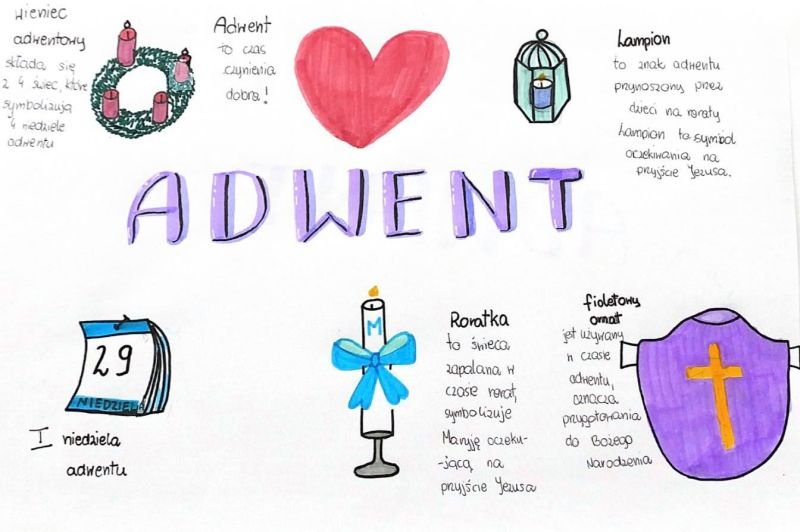 Wieniec
adwentowy
składa się
z 4 świec, które
symbolizują
4 niedziele
adwentu
Adwent
to czas
czynienia
dobra!
Lampion
to znak adwentu
przynoszony przez
dzieci na roraty
Lampion to symbol
oczekiwania na
przyjście Jezusa.
ADWENT
29
NIEDZIELA
I niedziela
adwentu
M
Roratka
to świeca
zapalana w
czasie rorat,
symbolizuje
Maryję oczeku-
-jącą na
przyjście Jezusa
fioletowy
ornat
jet używany
w czasie
adwentu,
oznacza
przygotowania
do Bożego
Narodzenia